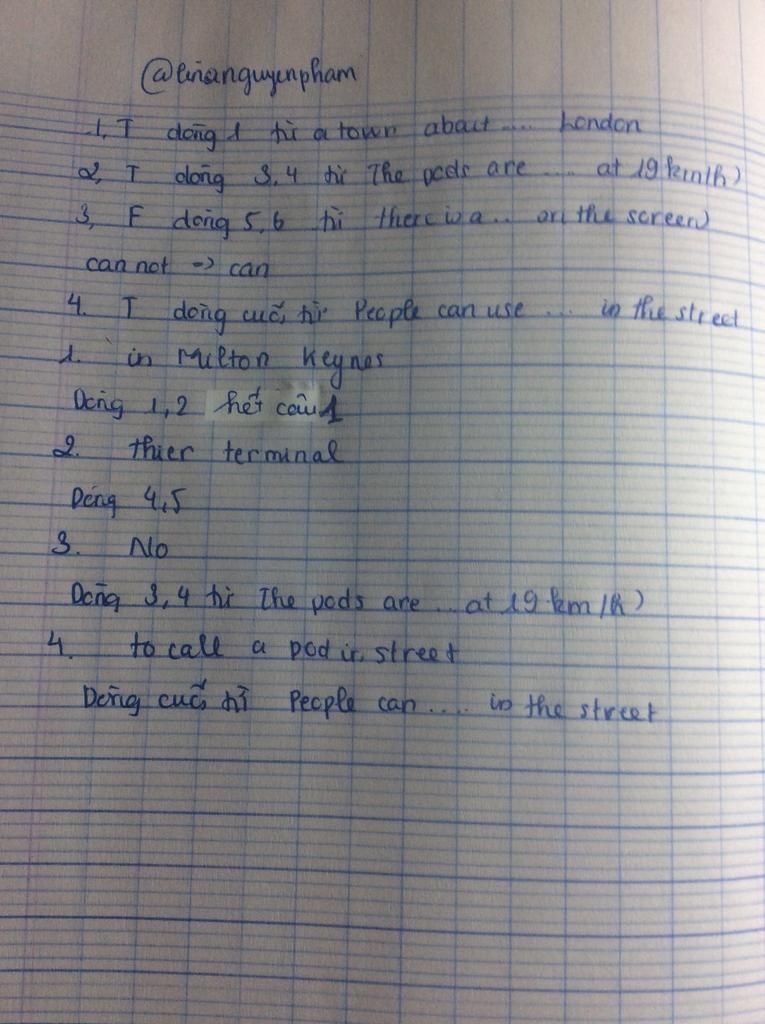 @linanguyenpham
1, T dòng 1 từ a town about .... London
2, T dòng 3,4 từ The pods are .... at 19 km/h)
3, F dòng 5,6 từ there is a .. on the screen)
can not => can
4. T dòng cuối từ People can use .... in the street
1. in Milton Keynes
Dòng 1,2 hết câu 1
2. thier terminal
Dòng 4,5
3. No
Dòng 3,4 từ The pods are .. at 19 km/h)
4. to call a pod in street
Dòng cuối từ People can .... in the street